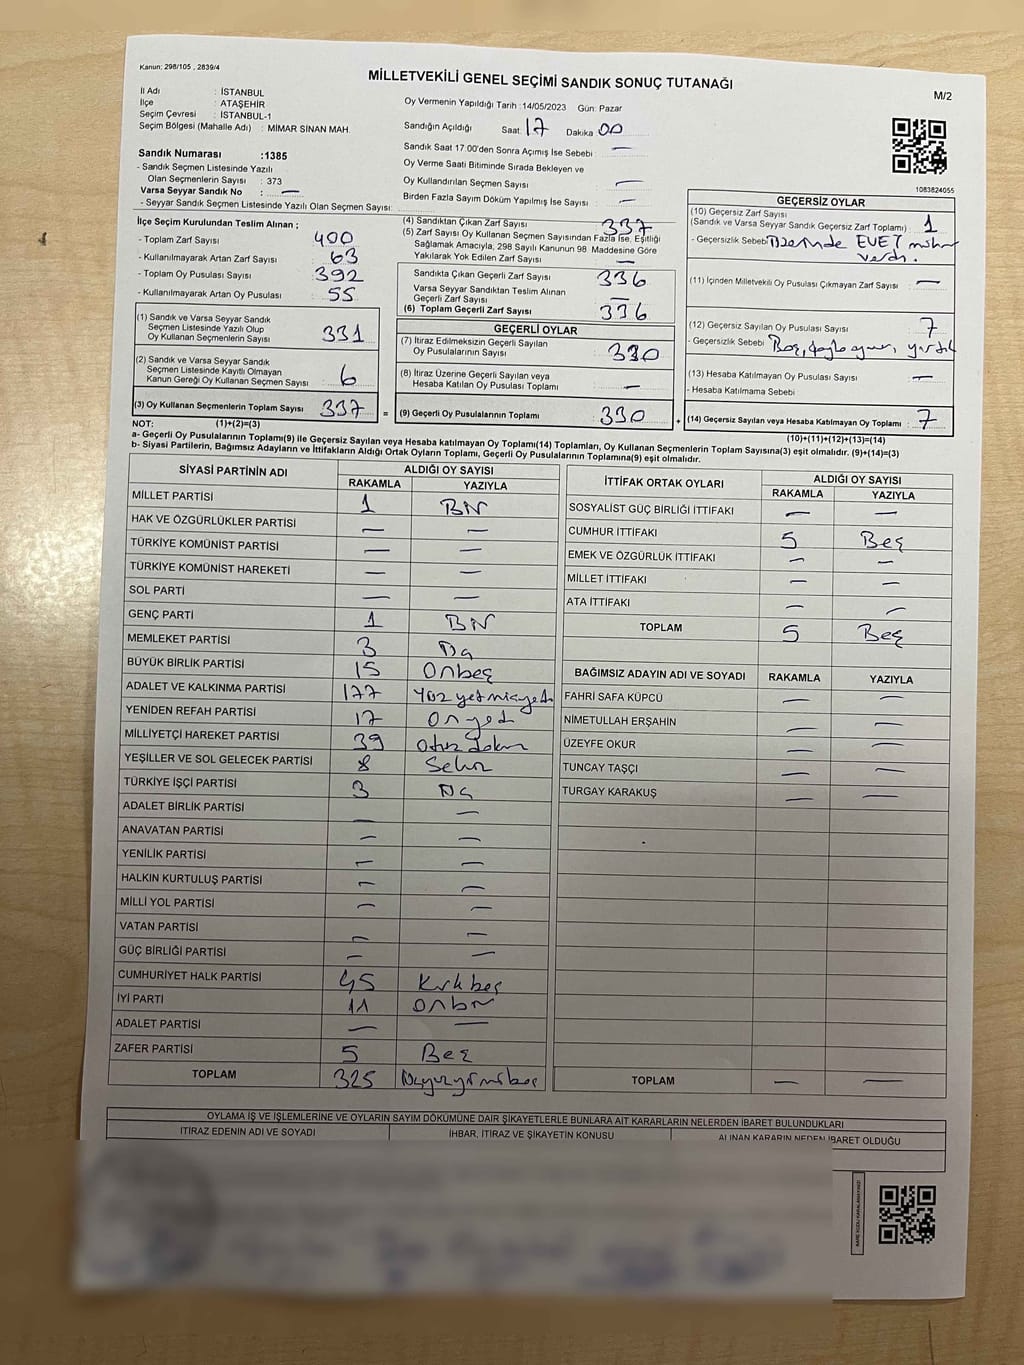 Kanun: 298/105 , 2839/4
MİLLETVEKİLİ GENEL SEÇİMİ SANDIK SONUÇ TUTANAĞI
M/2
İl Adı : İSTANBUL
İlçe : ATAŞEHİR
Seçim Çevresi : İSTANBUL-1
Seçim Bölgesi (Mahalle Adı) : MİMAR SİNAN MAH.
Oy Vermenin Yapıldığı Tarih :14/05/2023 Gün: Pazar
Sandığın Açıldığı Saat 17 Dakika 00
Sandık Saat 17.00'den Sonra Açımış İse Sebebi : —
Oy Verme Saati Bitiminde Sırada Bekleyen ve
Oy Kullandırılan Seçmen Sayısı : —
Birden Fazla Sayım Döküm Yapılmış İse Sayısı : —
Sandık Numarası :1385
- Sandık Seçmen Listesinde Yazılı
Olan Seçmenlerin Sayısı : 373
Varsa Seyyar Sandık No : —
- Seyyar Sandık Seçmen Listesinde Yazılı Olan Seçmen Sayısı:
1083824055
İlçe Seçim Kurulundan Teslim Alınan ;
- Toplam Zarf Sayısı : 400
- Kullanılmayarak Artan Zarf Sayısı : 63
- Toplam Oy Pusulası Sayısı : 392
- Kullanılmayarak Artan Oy Pusulası : 55
(1) Sandık ve Varsa Seyyar Sandık
Seçmen Listesinde Yazılı Olup
Oy Kullanan Seçmenlerin Sayısı : 331
(2) Sandık ve Varsa Seyyar Sandık
Seçmen Listesinde Kayıtlı Olmayan
Kanun Gereği Oy Kullanan Seçmen Sayısı : 6
(3) Oy Kullanan Seçmenlerin Toplam Sayısı : 337
(4) Sandıktan Çıkan Zarf Sayısı : 337
(5) Zarf Sayısı Oy Kullanan Seçmen Sayısından Fazla İse, Eşitliği
Sağlamak Amacıyla, 298 Sayılı Kanunun 98. Maddesine Göre
Yakılarak Yok Edilen Zarf Sayısı : —
Sandıkta Çıkan Geçerli Zarf Sayısı : 336
Varsa Seyyar Sandıktan Teslim Alınan
Geçerli Zarf Sayısı : —
(6) Toplam Geçerli Zarf Sayısı : 336
GEÇERLİ OYLAR
(7) İtiraz Edilmeksizin Geçerli Sayılan
Oy Pusulalarının Sayısı : 330
(8) İtiraz Üzerine Geçerli Sayılan veya
Hesaba Katılan Oy Pusulası Toplamı : —
= (9) Geçerli Oy Pusulalarının Toplamı : 330
GEÇERSİZ OYLAR
(10) Geçersiz Zarf Sayısı
(Sandık ve Varsa Seyyar Sandık Geçersiz Zarf Toplamı) : 1
- Geçersizlik Sebebi : Üzerinde EVET mührü
vardı.
(11) İçinden Milletvekili Oy Pusulası Çıkmayan Zarf Sayısı : —
(12) Geçersiz Sayılan Oy Pusulası Sayısı : 7
- Geçersizlik Sebebi : Boş, yırtık
(13) Hesaba Katılmayan Oy Pusulası Sayısı : —
- Hesaba Katılmama Sebebi
+ (14) Geçersiz Sayılan veya Hesaba Katılmayan Oy Toplamı : 7
NOT: (1)+(2)=(3)
(10)+(11)+(12)+(13)=(14)
a- Geçerli Oy Pusulalarının Toplamı(9) ile Geçersiz Sayılan veya Hesaba katılmayan Oy Toplamı(14) Toplamları, Oy Kullanan Seçmenlerin Toplam Sayısına(3) eşit olmalıdır. (9)+(14)=(3)
b- Siyasi Partilerin, Bağımsız Adayların ve İttifakların Aldığı Ortak Oyların Toplamı, Geçerli Oy Pusulalarının Toplamına(9) eşit olmalıdır.
SİYASİ PARTİNİN ADI ALDIĞI OY SAYISI
RAKAMLA YAZIYLA
MİLLET PARTİSİ 1 Bir
HAK VE ÖZGÜRLÜKLER PARTİSİ — —
TÜRKİYE KOMÜNİST PARTİSİ — —
TÜRKİYE KOMÜNİST HAREKETİ — —
SOL PARTİ — —
GENÇ PARTİ 1 Bir
MEMLEKET PARTİSİ 3 Üç
BÜYÜK BİRLİK PARTİSİ 15 Onbeş
ADALET VE KALKINMA PARTİSİ 177 Yüzyetmişyedi
YENİDEN REFAH PARTİSİ 17 Onyedi
MİLLİYETÇİ HAREKET PARTİSİ 39 Otuzdokuz
YEŞİLLER VE SOL GELECEK PARTİSİ 8 Sekiz
TÜRKİYE İŞÇİ PARTİSİ 3 Üç
ADALET BİRLİK PARTİSİ — —
ANAVATAN PARTİSİ — —
YENİLİK PARTİSİ — —
HALKIN KURTULUŞ PARTİSİ — —
MİLLİ YOL PARTİSİ — —
VATAN PARTİSİ — —
GÜÇ BİRLİĞİ PARTİSİ — —
CUMHURİYET HALK PARTİSİ 45 Kırkbeş
İYİ PARTİ 11 Onbir
ADALET PARTİSİ — —
ZAFER PARTİSİ 5 Beş
TOPLAM 325 Üçyüzyirmibeş
İTTİFAK ORTAK OYLARI ALDIĞI OY SAYISI
RAKAMLA YAZIYLA
SOSYALİST GÜÇ BİRLİĞİ İTTİFAKI — —
CUMHUR İTTİFAKI 5 Beş
EMEK VE ÖZGÜRLÜK İTTİFAKI — —
MİLLET İTTİFAKI — —
ATA İTTİFAKI — —
TOPLAM 5 Beş
BAĞIMSIZ ADAYIN ADI VE SOYADI RAKAMLA YAZIYLA
FAHRİ SAFA KÜPCÜ — —
NİMETULLAH ERŞAHİN — —
ÜZEYFE OKUR — —
TUNCAY TAŞÇI — —
TURGAY KARAKUŞ — —
TOPLAM — —
OYLAMA İŞ VE İŞLEMLERİNE VE OYLARIN SAYIM DÖKÜMÜNE DAİR ŞİKAYETLERLE BUNLARA AİT KARARLARIN NELERDEN İBARET BULUNDUKLARI
İTİRAZ EDENİN ADI VE SOYADI İHBAR, İTİRAZ VE ŞİKAYETİN KONUSU ALINAN KARARIN NEDEN İBARET OLDUĞU